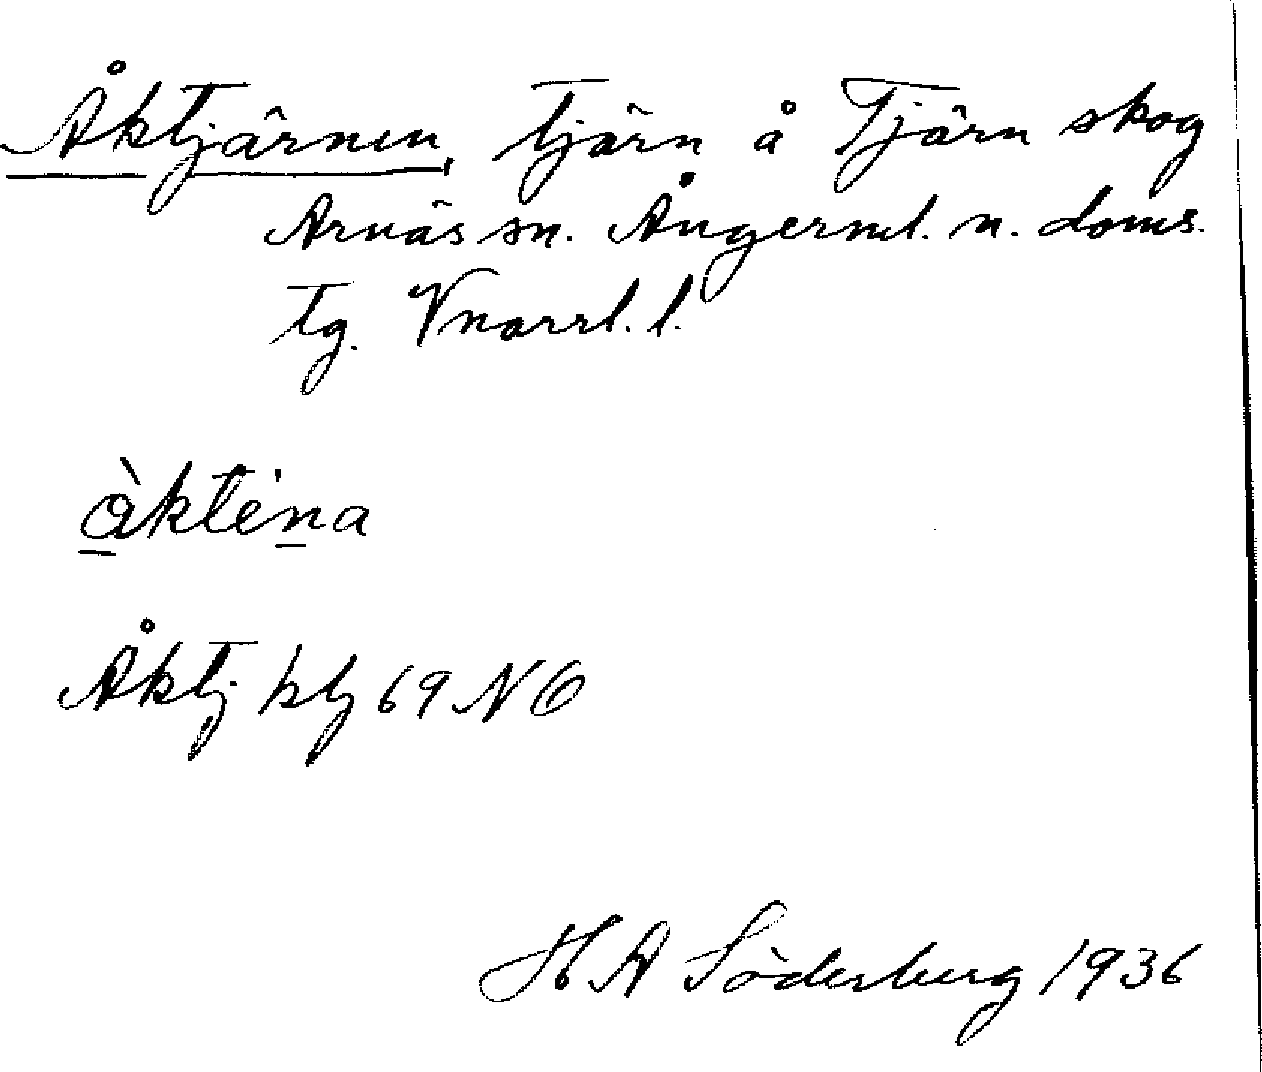 Åktjärnen, tjärn å Tjärn skog
Arnäs sn. Ångerml. n. doms.
tg. Vnorrl. l.
àkténa
Åktj ktj 69 NO
H A Söderberg 1936